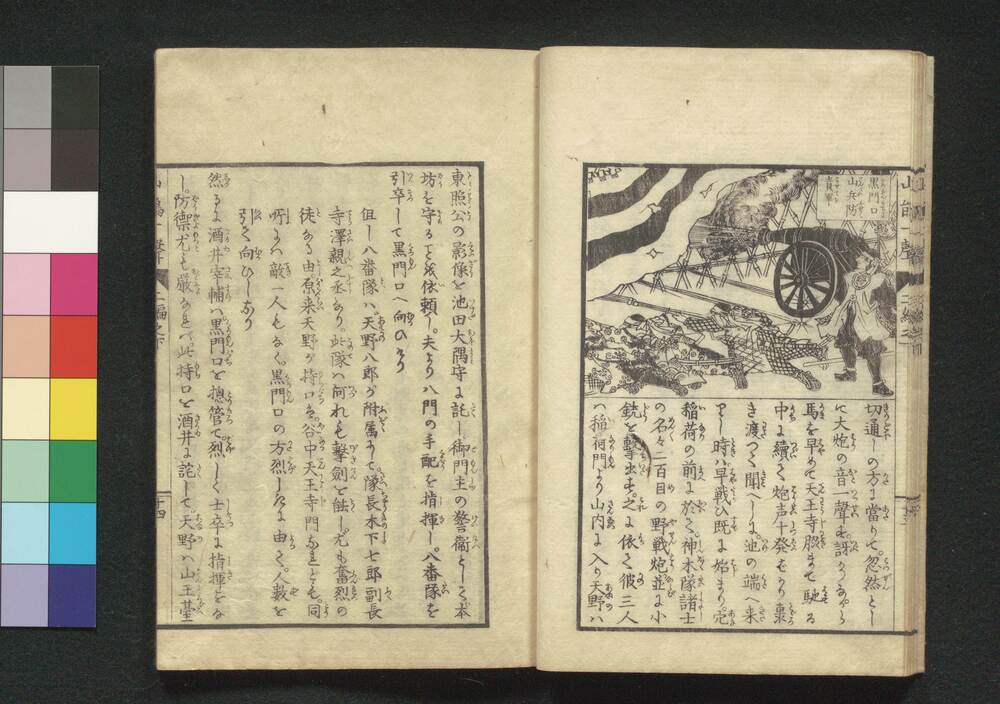 黒門口
山兵防
切通しの方に當りて忽然とし
て大炮の音一聲す訝りながら
馬を早めて天王寺脇まで馳る
中に續て炮声十發もかり裏
き渡つて聞へしは池の端へ来
りし時ハ早戦ひ既に始まり
稲荷の前に於て神木隊諸士
の名々二百目の野戦炮並に小
銃を撃出す之に依て彼三人
ハ稲荷門より山内に入り天野ハ
東照公の影像を池田大隅守に託し御門主の警衛として本
坊を守ることを依頼し夫より八門の手配を指揮し八番隊を
引卒して黒門口へ向ひけり
但し八番隊ハ天野八郎が附属にて隊長木下七郎副長
寺澤親之丞なり此隊ハ何れも撃劍を能し尤も奮烈の
徒なる由原来天野が持口ハ谷中天王寺門なれども同
所にハ敵一人もなく黒門口の方烈しきに由て人数を
引て向ひしなり
然るに酒井宰輔ハ黒門口を摠管て烈しく士卒に指揮をな
し防禦尤も嚴なれバ此持口を酒井に託して天野ハ山王臺
十四